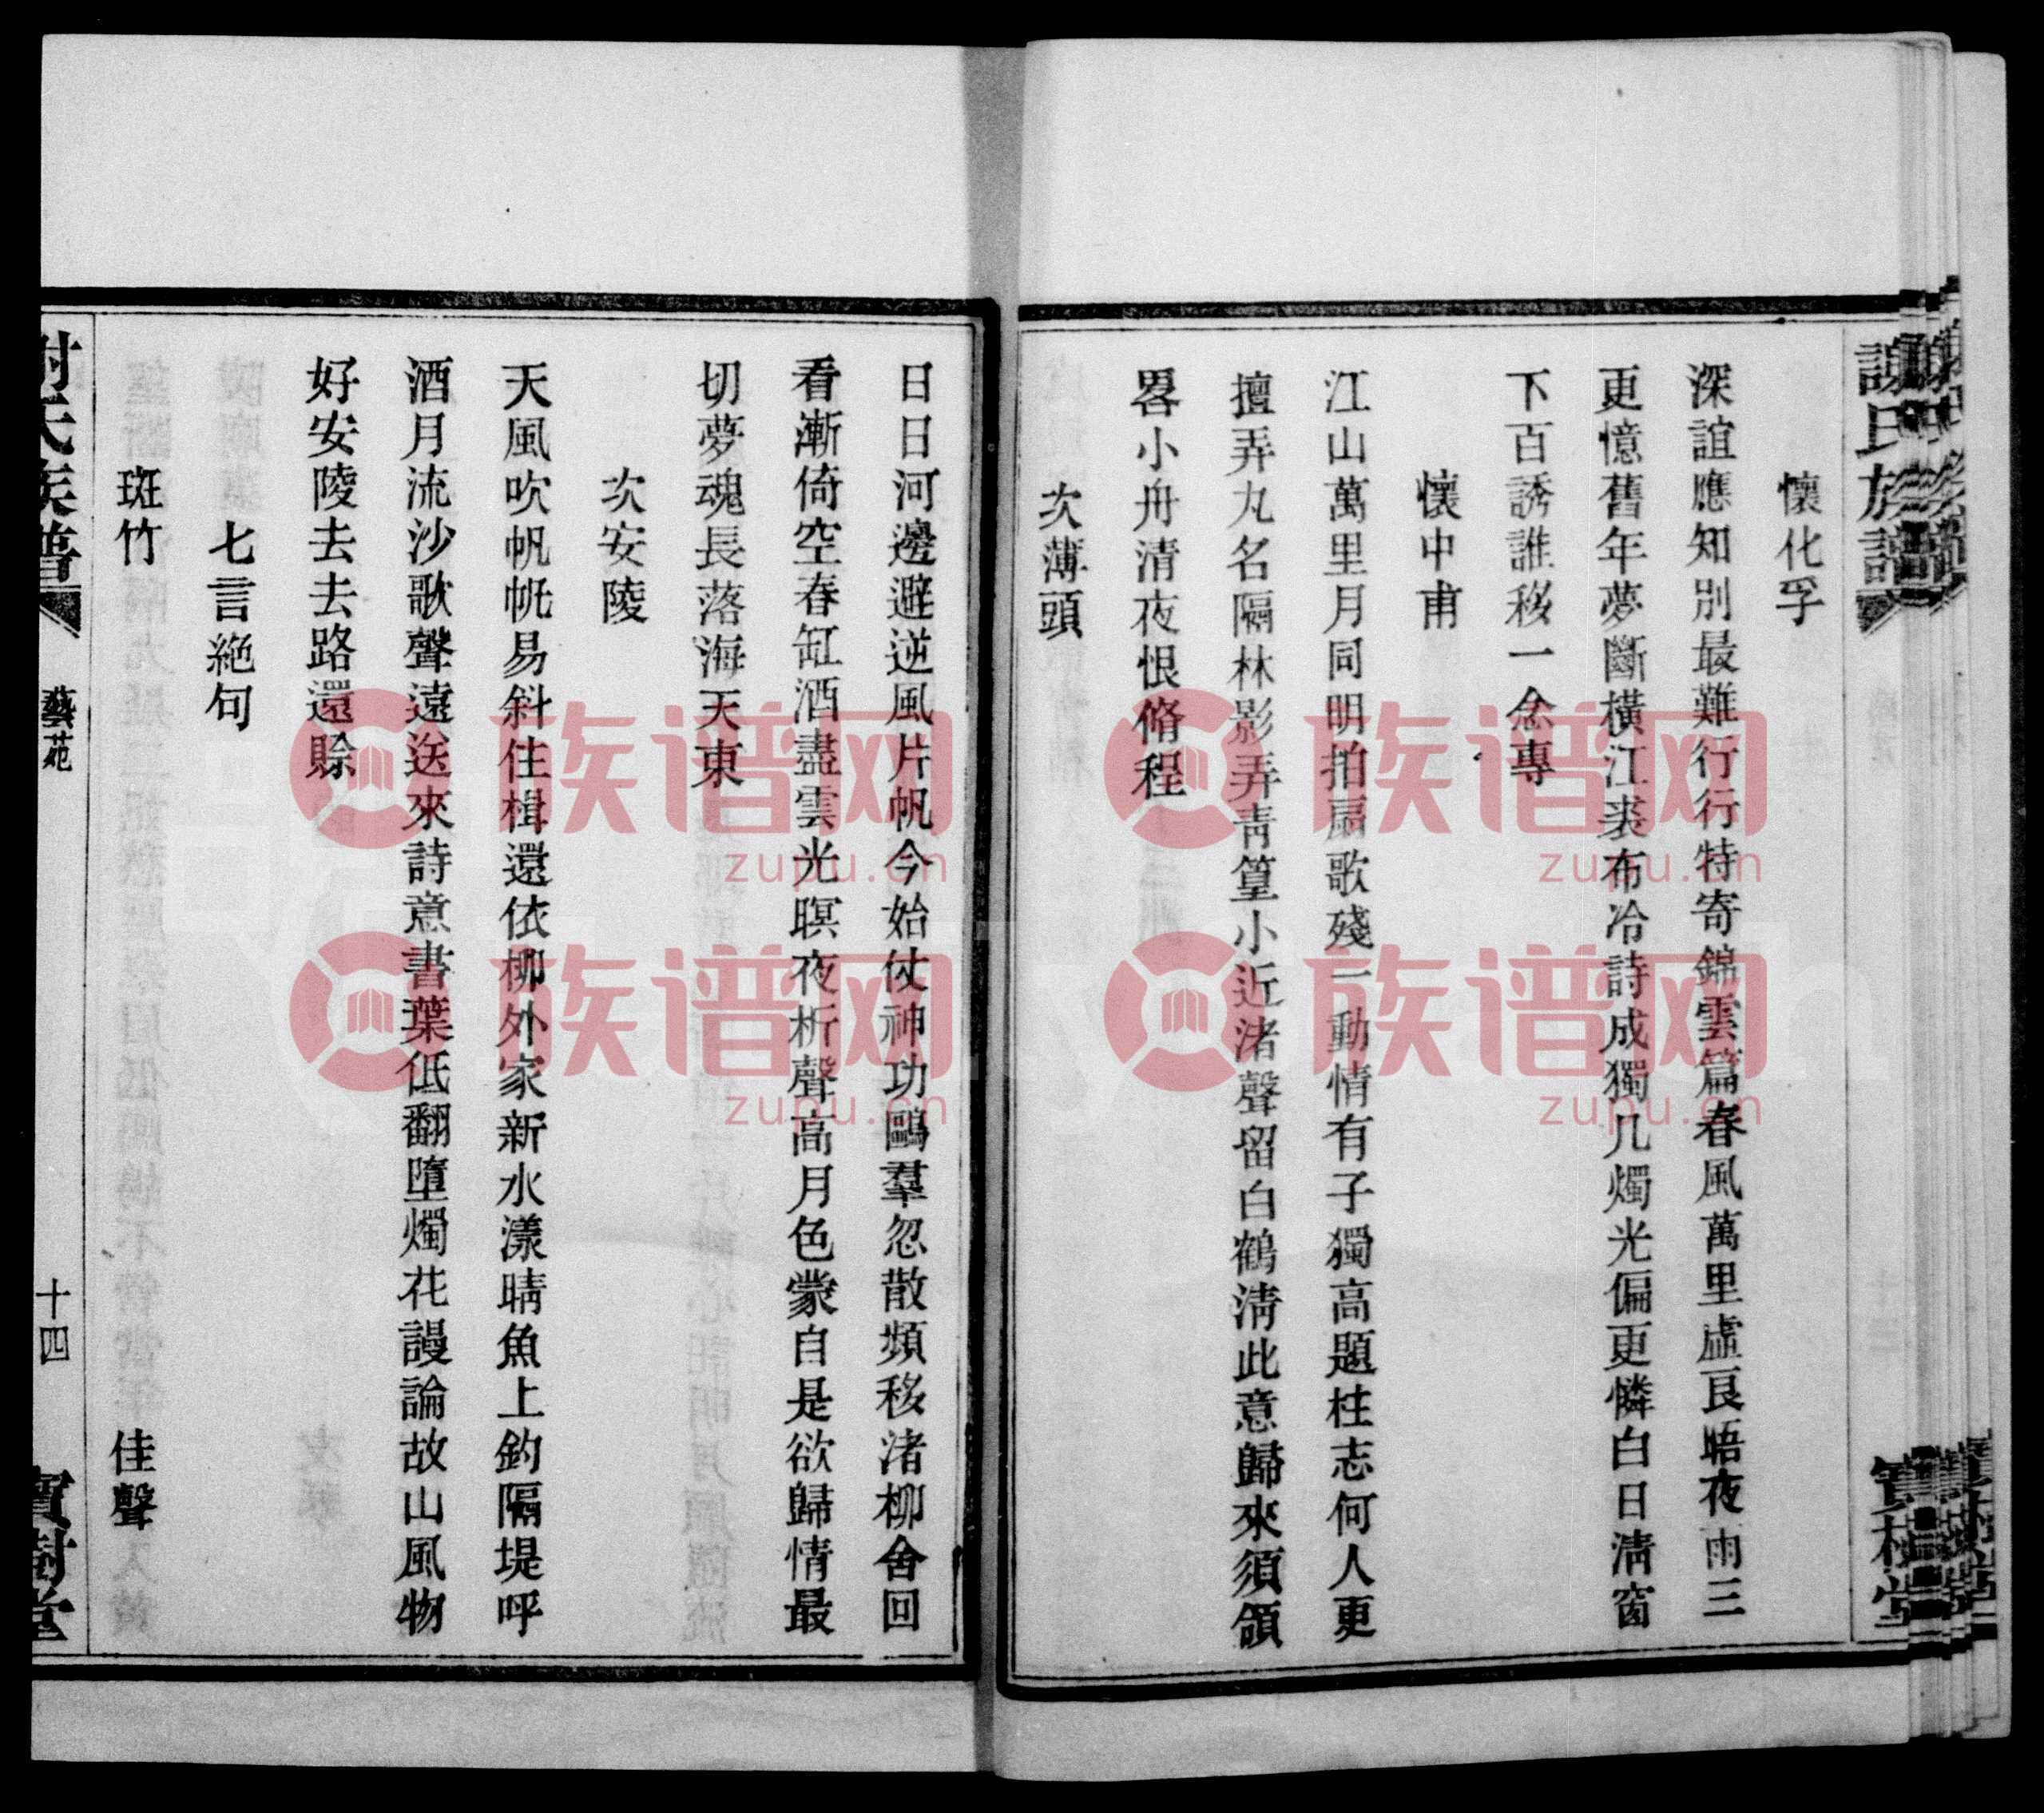 謝氏族譜
寶樹堂
懷化孚
深誼應知別最難行行特寄錦雲篇春風萬里虛良晤夜雨三
更憶舊年夢斷橫江裘布冷詩成獨几燭光偏更憐白日淸窗
下百誘誰移一念專
懷中甫
江山萬里月同明拍扇歌殘一動情有子獨高題柱志何人更
擅弄丸名隔林影弄靑篁小近渚聲留白鶴淸此意歸來須領
畧小舟清夜恨脩程
次薄頭
日日河邊避逆風片帆今始仗神功鷗羣忽散頻移渚柳舍回
看漸倚空春缸酒盡雲光暝夜析聲高月色蒙自是欲歸情最
切夢魂長落海天東
次安陵
天風吹帆帆易斜住楫還依柳外家新水漾晴魚上釣隔堤呼
酒月流沙歌聲遠送來詩意書葉低翻墮燭花謾論故山風物
好安陵去去路還賒
七言絶句
斑竹 佳聲
謝氏族譜 藝苑 十四 寶樹堂
族谱网
zupu.cn
族谱网
zupu.cn
族谱网
zupu.cn
族谱网
zupu.cn